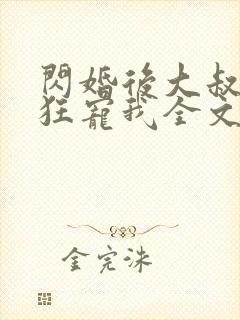 閃婚後大叔
狂寵我全文
金完洙